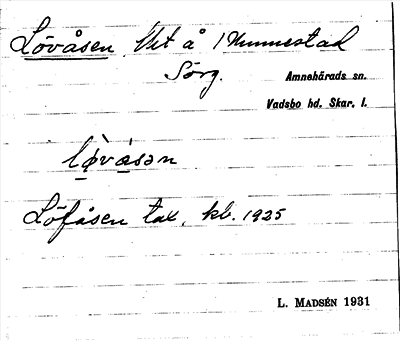 Lövåsen, Ut å / Munnestad
Sörg.
Amnehärads sn.
Vadsbo hd. Skar. l.
lø̀vå̀sən
Löfåsen tax. kb. 1925
L. MADSÉN 1931